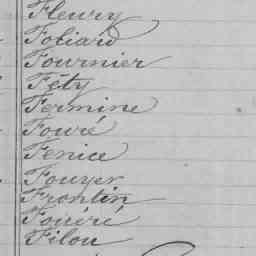 Fleury
Foliard
Fournier
Féty
Fermine
Fouré
Fenice
Fouyer
Frontin
Fouéré
Filou